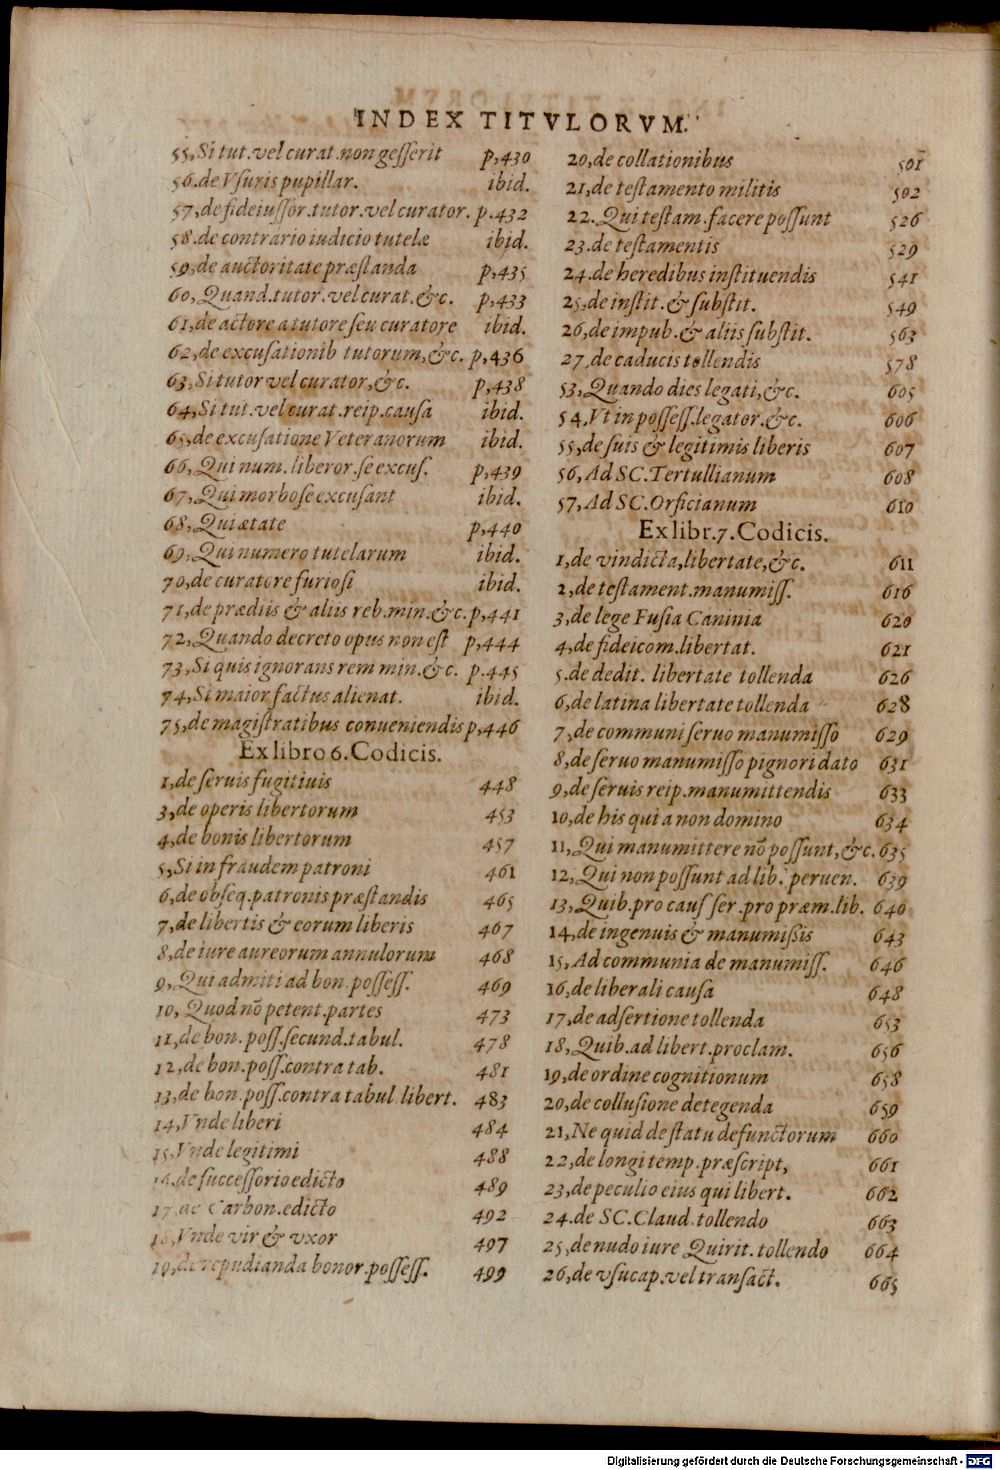 INDEX TITVLORVM.
55,Si tut.vel curat.non gesserit p,430
56.de Vsuris pupillar. ibid.
57,de fideiussor.tutor.vel curator. p.432
58.de contrario iudicio tutelæ ibid.
59,de auctoritate præstanda p,435
60, Quand.tutor.vel curat.&c. p,433
61,de actore a tutore seu curatore ibid.
62,de excusationib tutorum,&c. p,436
63,Si tutor vel curator,&c. p,438
64,Si tut.vel curat.reip.causa ibid.
65,de excusatione Veteranorum ibid.
66, Qui num.liberor.se excus. p,439
67, Qui morbo se excusant ibid.
68, Qui ætate p,440
69, Qui numero tutelarum ibid.
70,de curatore furiosi ibid.
71,de prædiis & aliis reb.min.&c. p,441
72, Quando decreto opus non est p,444
73,Si quis ignorans rem min.&c. p.445
74,Si maior factus alienat. ibid.
75,de magistratibus conueniendis p,446
Ex libro 6.Codicis.
1,de seruis fugitiuis 448
3,de operis libertorum 453
4,de bonis libertorum 457
5,Si in fraudem patroni 461
6,de obseq.patronis præstandis 465
7,de libertis & eorum liberis 467
8,de iure aureorum annulorum 468
9,Qui admiti ad bon.possess. 469
10, Quod nõ petent.partes 473
11,de bon.poss.secund.tabul. 478
12,de bon.poss.contra tab. 481
13,de bon.poss.contra tabul.libert. 483
14,Vnde liberi 484
15,Vnde legitimi 488
16.de successorio edicto 489
17,de Carbon.edicto 492
18,Vnde vir & vxor 497
19,de repudianda bonor.possess. 499
20,de collationibus 501
21,de testamento militis 502
22.Qui testam.facere possunt 526
23.de testamentis 529
24.de heredibus instituendis 541
25,de instit.& substit. 549
26,de impub.& aliis substit. 563
27,de caducis tollendis 578
53,Quando dies legati,&c. 605
54,Vt in possess.legator.&c. 606
55,de suis & legitimis liberis 607
56,Ad SC.Tertullianum 608
57,Ad SC.Orficianum 610
Ex libr.7.Codicis.
1,de vindicta,libertate,&c. 611
2,de testament.manumiss. 616
3,de lege Fusia Caninia 620
4,de fideicom.libertat. 621
5.de dedit. libertate tollenda 626
6,de latina libertate tollenda 628
7,de communi seruo manumisso 629
8,de seruo manumisso pignori dato 631
9,de seruis reip.manumittendis 633
10,de his qui a non domino 634
11, Qui manumittere nõ possunt,&c. 635
12, Qui non possunt ad lib. peruen. 639
13,Quib.pro caus ser.pro præm.lib. 640
14,de ingenuis & manumissis 643
15,Ad communia de manumiss. 646
16,de liberali causa 648
17,de adsertione tollenda 653
18, Quib.ad libert.proclam. 656
19,de ordine cognitionum 658
20,de collusione detegenda 659
21,Ne quid de statu defunctorum 660
22,de longi temp.præscript, 661
23,de peculio eius qui libert. 662
24.de SC.Claud.tollendo 663
25,de nudo iure Quirit.tollendo 664
26,de vsucap.vel transact. 665
Digitalisierung gefördert durch die Deutsche Forschungsgemeinschaft - DFG